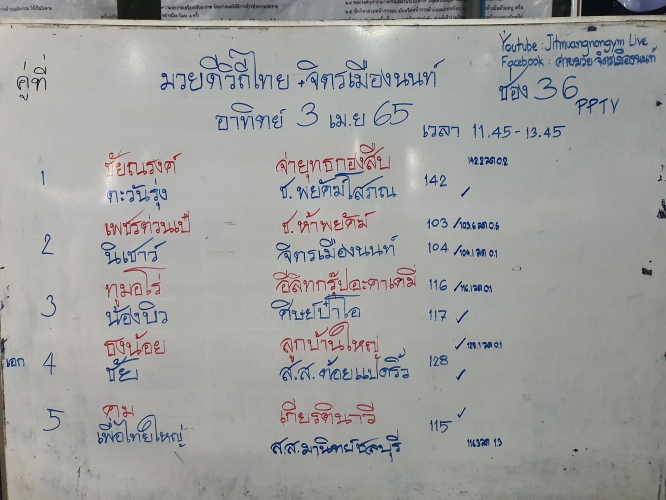 Youtube : Jitmuangnongym Live
Facebook : ค่ายมวย จิตรเมืองนนท์
คู่ที่
มวยดีวิถีไทย + จิตรเมืองนนท์
ช่อง 36
PPTV
อาทิทย์ 3 เม.ย 65
เวลา 11.45 - 13.45
1 ชัยณรงค์ จ่ายุทธกองสืบ 142.2 ลด 0.2
ตะวันรุ่ง ช.พยัคฆ์โสภณ 142 ✓
เพชรด่วนเป๋ ช.ห้าพยัคฆ์ 103 / 103.6 ลด 0.6
2 นิเชาว์ จิตรเมืองนนท์ 104 / 104.1 ลด 0.1
ทูมอโร่ อีลิทกรุ๊ปอะคาเดมี่ 116 / 116.1 ลด 0.1
3 น้องบิว ศิษย์ป๋าโอ 117 ✓
ธงน้อย ลูกบ้านใหญ่ ✓ 128.1 ลด 0.1
เอก 4 ชัย ส.ส.ต้อยแปดริ้ว 128 ✓
5 คม เกียรตินาวี ✓
เพื่อไทยใหญ่ 115
ส.ส.มานิตย์ชลบุรี 116.3 ลด 1.3